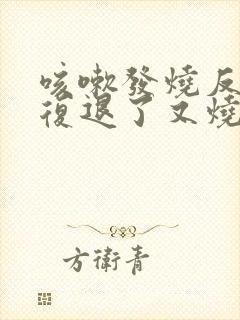 咳嗽發燒反
復退了又燒
方衛青